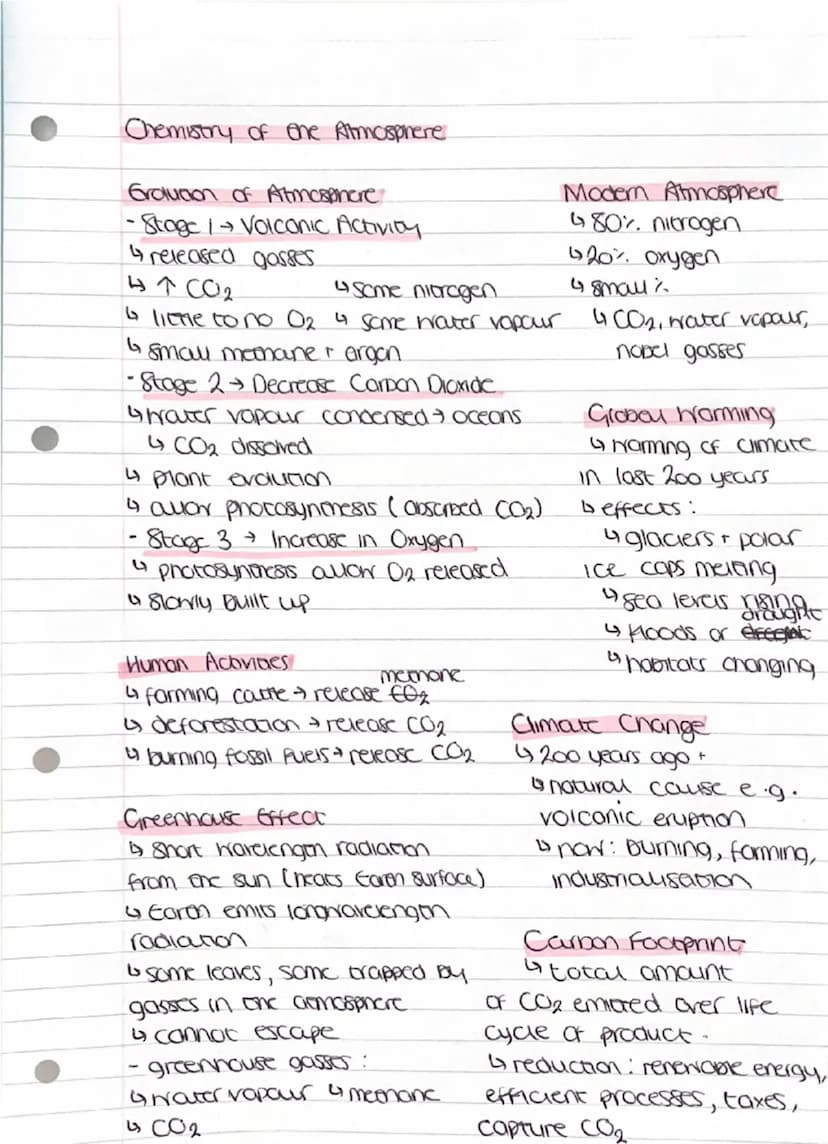 Chemistry of the Atmosphere
Evolution of Atmosphere
- Stage 1 → Volcanic Activity
↳ released gasses
↳ ↑ CO₂ ↳ some nitrogen
↳ little to no O₂ ↳ some water vapour
↳ small methane + argon
- Stage 2 → Decrease Carbon Dioxide
↳ water vapour condensed → oceans
↳ CO₂ dissolved
↳ plant evolution
↳ allow photosynthesis (absorbed CO₂)
- Stage 3 → Increase in Oxygen
↳ photosynthesis allow O₂ released
↳ slowly built up
Modern Atmosphere
↳ 80% nitrogen
↳ 20% oxygen
↳ small %
↳ CO₂, water vapour,
nobel gasses
Global Warming
↳ warming of climate
in last 200 years
↳ effects:
↳ glaciers + polar
ice caps melting
↳ sea levels rising
↳ floods or drought
↳ habitats changing
Human Activities
↳ farming cattle → release CO₂ methane
↳ deforestation → release CO₂
↳ burning fossil fuels → release CO₂
Climate Change
↳ 200 years ago +
↳ natural cause e.g.
volcanic eruption
↳ now: burning, farming,
industrialisation
Greenhouse Effect
↳ short wavelength radiation
from the sun (heats Earth surface)
↳ Earth emits longwavelength
radiation
↳ some leaves, some trapped by
gasses in the atmosphere
↳ cannot escape
- greenhouse gasses:
↳ water vapour ↳ methane
↳ CO₂
Carbon Footprint
↳ total amount
of CO₂ emitted over life
cycle of product.
↳ reduction: renewable energy,
efficient processes, taxes,
capture CO₂